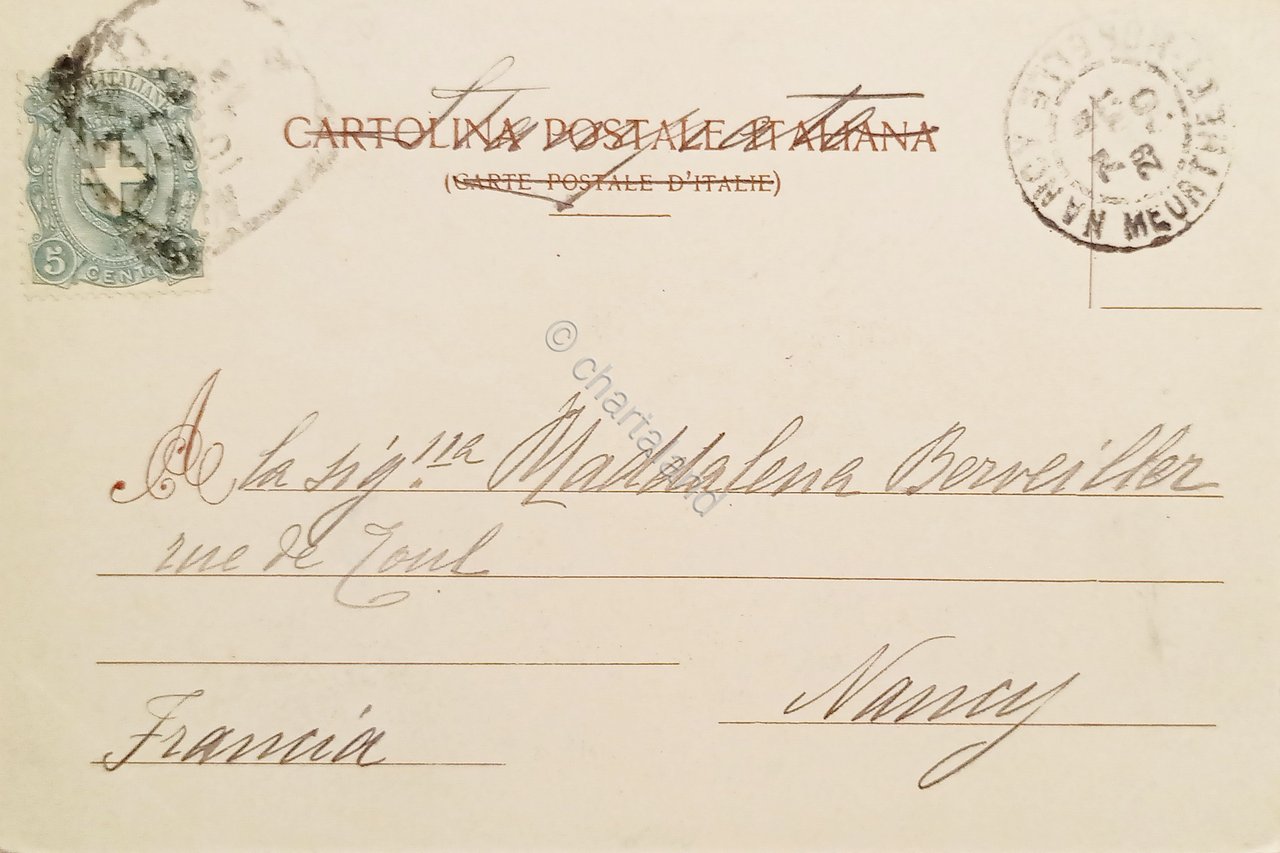 POSTE ITALIANE
5 CENT. 5
CARTOLINA POSTALE ITALIANA
Stampata
(CARTE POSTALE D'ITALIE)
NANCY MEURTHE-ET-MOSELLE
© chartaland
A la sig.na Maddalena Berveiller
rue de Toul
Nancy
Francia